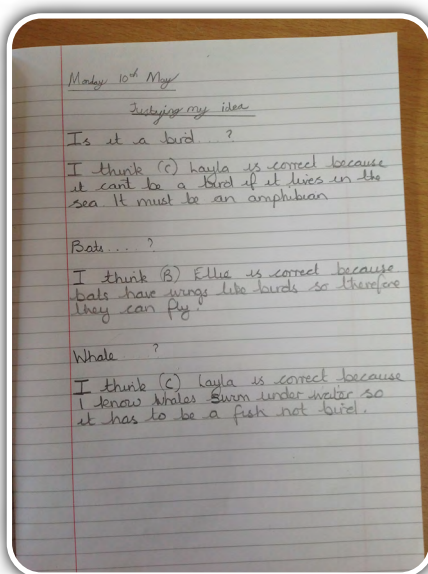 Monday 10th May
Justying my idea
Is it a bird...?
I think (C) Layla is correct because
it cant be a bird if it lives in the
sea It must be an amphibian
Bats....?
I think (B) Ellie is correct because
bats have wings like birds so therefore
they can fly.
Whale ?
I think (C) Layla is correct because
I know whales swim under water so
it has to be a fish not bird.